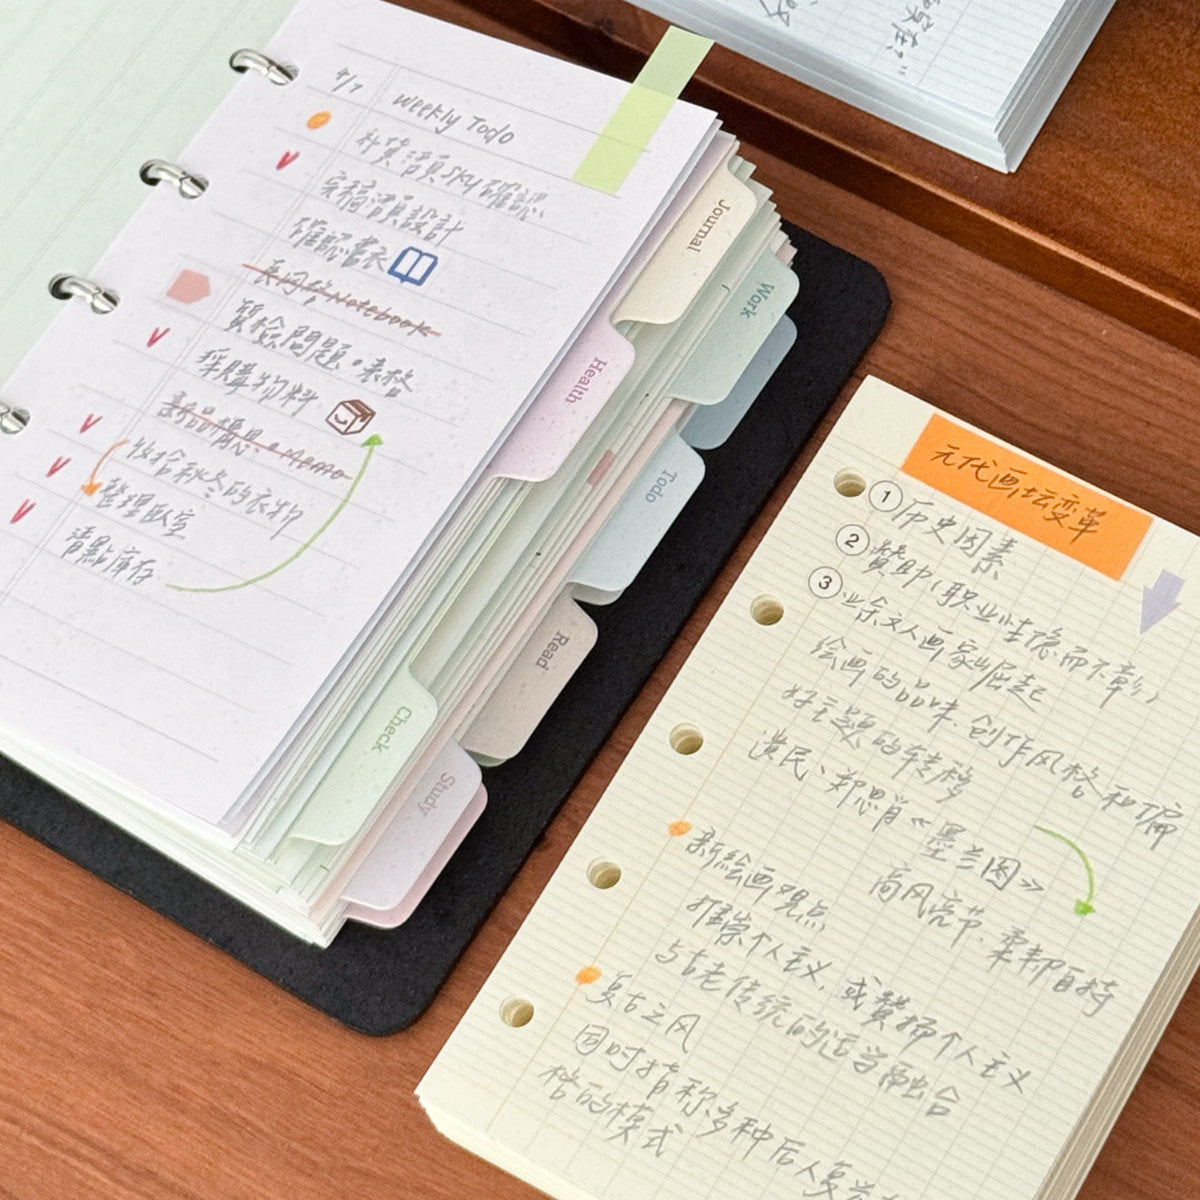 weekly Todo
補貨請員SKU確認
完稿須員設計
確認書衣
Notebook
質檢問題・表格
採購物料
新品構思 Memo
收拾秋冬的衣物
整理臥室
清點庫存
Journal
Work
Health
Todo
Read
Check
Study
元代画坛变革
① 历史因素
② 赞助（职业性隐而不彰）
③ 业余文人画家崛起
绘画的品味、创作风格和偏
好主题的转移
遗民、郑思肖《墨兰图》
高风亮节、柔韧自持
新绘画观点
推崇个人主义，或赞扬个人主义
与古老传统的适当融合
复古之风
同时指称多种后人复兴
格的模式